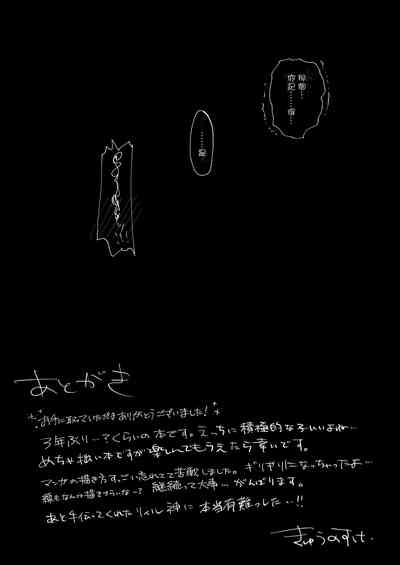 あとがき
お手に取っていただきありがとうございました!
3年ぶり…?くらいの本です。えっちに積極的な子いいよね…
めちゃ拙い本ですが楽しんでもらえたら幸いです。
マンガの描き方すごい忘れてて苦戦しました。ギリギリになっちゃったよ…
線もなんか描きづらいな…? 継続って大事… がんばります。
あと手伝ってくれたリィル神に本当有難うした…!!
きゅうのすけ.